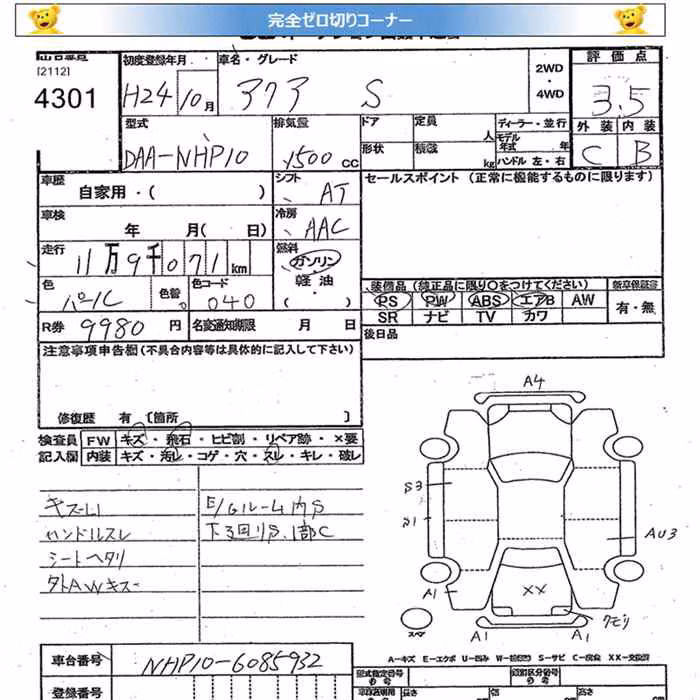 完全ゼロ切りコーナー
[2112]
4301
初度登録年月
H24 10月
車名・グレード
アクア S
2WD
・
4WD
評価点
3.5
外装 内装
C B
型式
DAA-NHP10
排気量
1500 cc
ドア
定員
人
形状
積載
kg
ディーラー・並行
モデル年式 年
ハンドル 左・右
車歴
自家用・( )
シフト
AT
車検
年 月( 日)
冷房
AAC
走行
11万9千071 km
燃料
ガソリン
・
軽油
色
パール
色替
色コード
040
R券 9980 円
名変通知期限 月 日
セールスポイント (正常に機能するものに限ります)
装備品 (純正品に限り○をつけてください)
PS PW ABS エアB AW
SR ナビ TV カワ
新車保証書
有・無
後日品
注意事項申告欄 (不具合内容等は具体的に記入して下さい)
修復歴 有 〔箇所 〕
検査員 FW キズ・飛石・ヒビ割・リペア跡・×要
記入欄 内装 キズ・汚レ・コゲ・穴・スレ・キレ・破レ
キズーLI
ハンドルスレ
シートヘタリ
タトAWキズー
E/Gルーム内S
下3回りS.1部C
A4
S3
S1
AU3
A1
XX
クモリ
スペア
A1
A1
A-キズ E-エクボ U-凹み W-補修跡 S-サビ C-腐食 XX-交換済
車台番号 NHP10-6085932
登録番号
型式指定番号
の 番号
類別区分番号
の 番号
長さ
幅
高さ